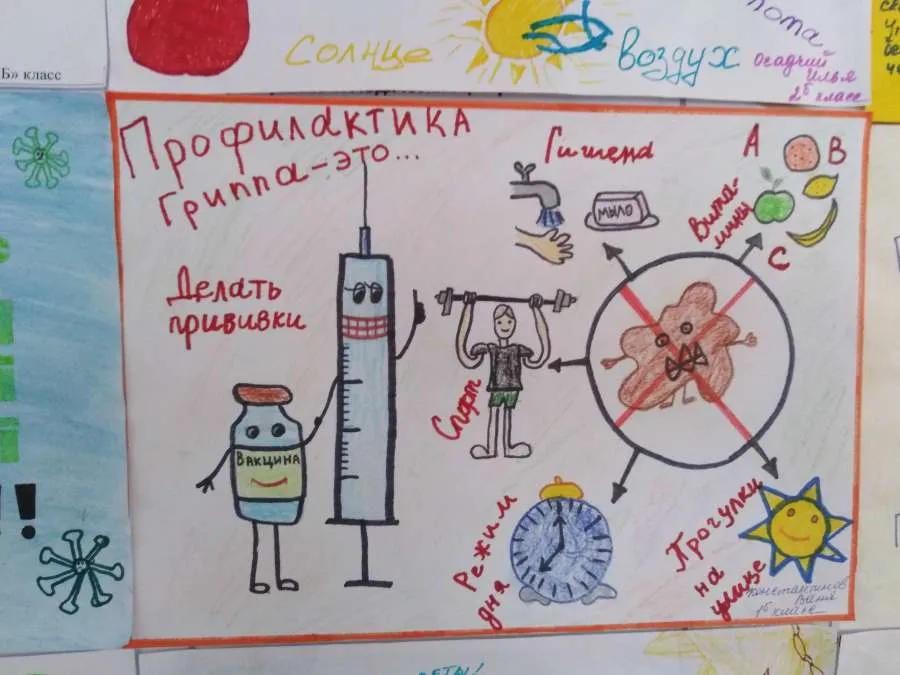 Б» класс
Солнце
Воздух
Осадчий
Илья
2б класс
Профилактика
Гриппа-это...
Делать
прививки
Вакцина
Гигиена
мыло
A
B
C
Вита-
мины
Спорт
Режим
дня
Прогулки
на
улице
Константинов
Ваня
1б классе